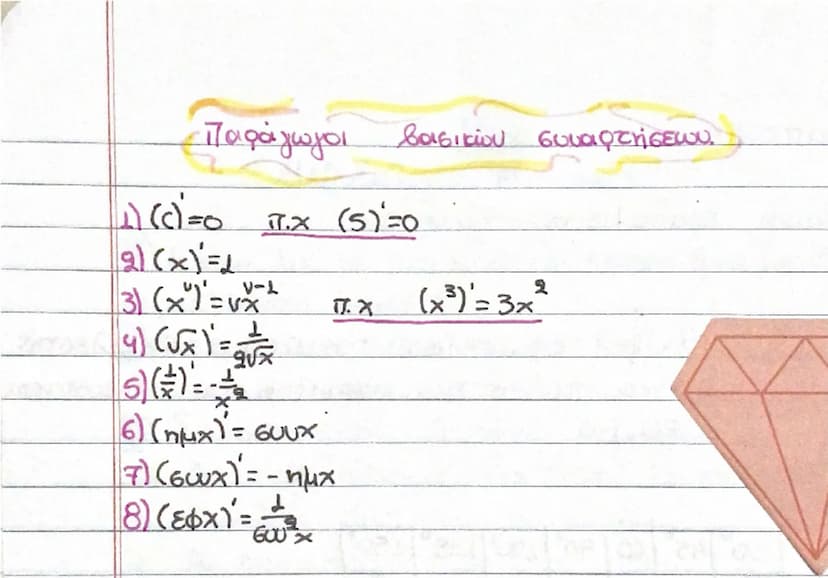 Παράγωγοι βασικών συναρτήσεων.
1) (c)'=0 π.χ (5)'=0
2) (x)'=1
3) (x^ν)'=νx^ν-1 π.χ (x^3)'=3x^2
4) (√x)'=1/2√x
5) (1/x)'=-1/x^2
6) (ημx)'=συνx
7) (συνx)'=-ημx
8) (εφx)'=1/συν^2x